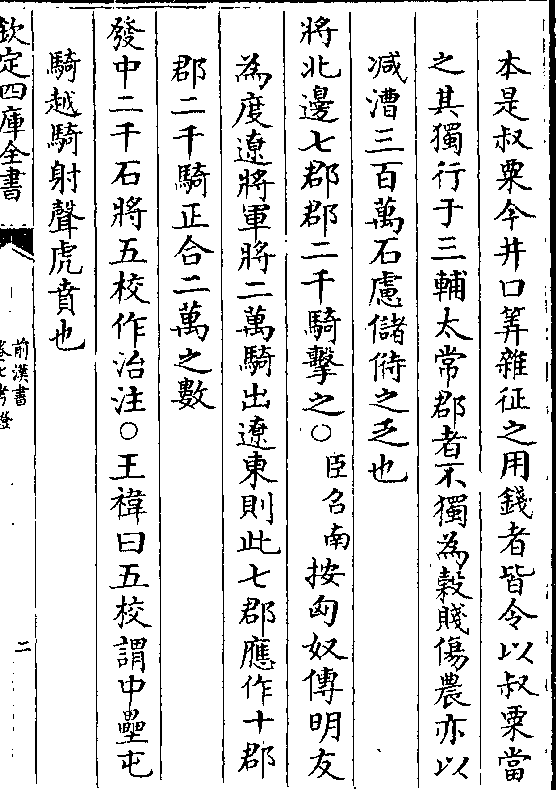 本是叔粟今井口筭雜征之用錢者皆令以叔粟當
之其獨行于三輔太常郡者不獨為穀賤傷農亦以
減漕三百萬石慮儲偫之乏也
將北邊七郡郡二千騎擊之○臣召南按匈奴傳明友
為度遼將軍將二萬騎出遼東則此七郡應作十郡
郡二千騎正合二萬之數
發中二千石將五校作治注○王禕曰五校謂中壘屯
騎越騎射聲虎賁也
欽定四庫全書
前漢書
卷七考證
二